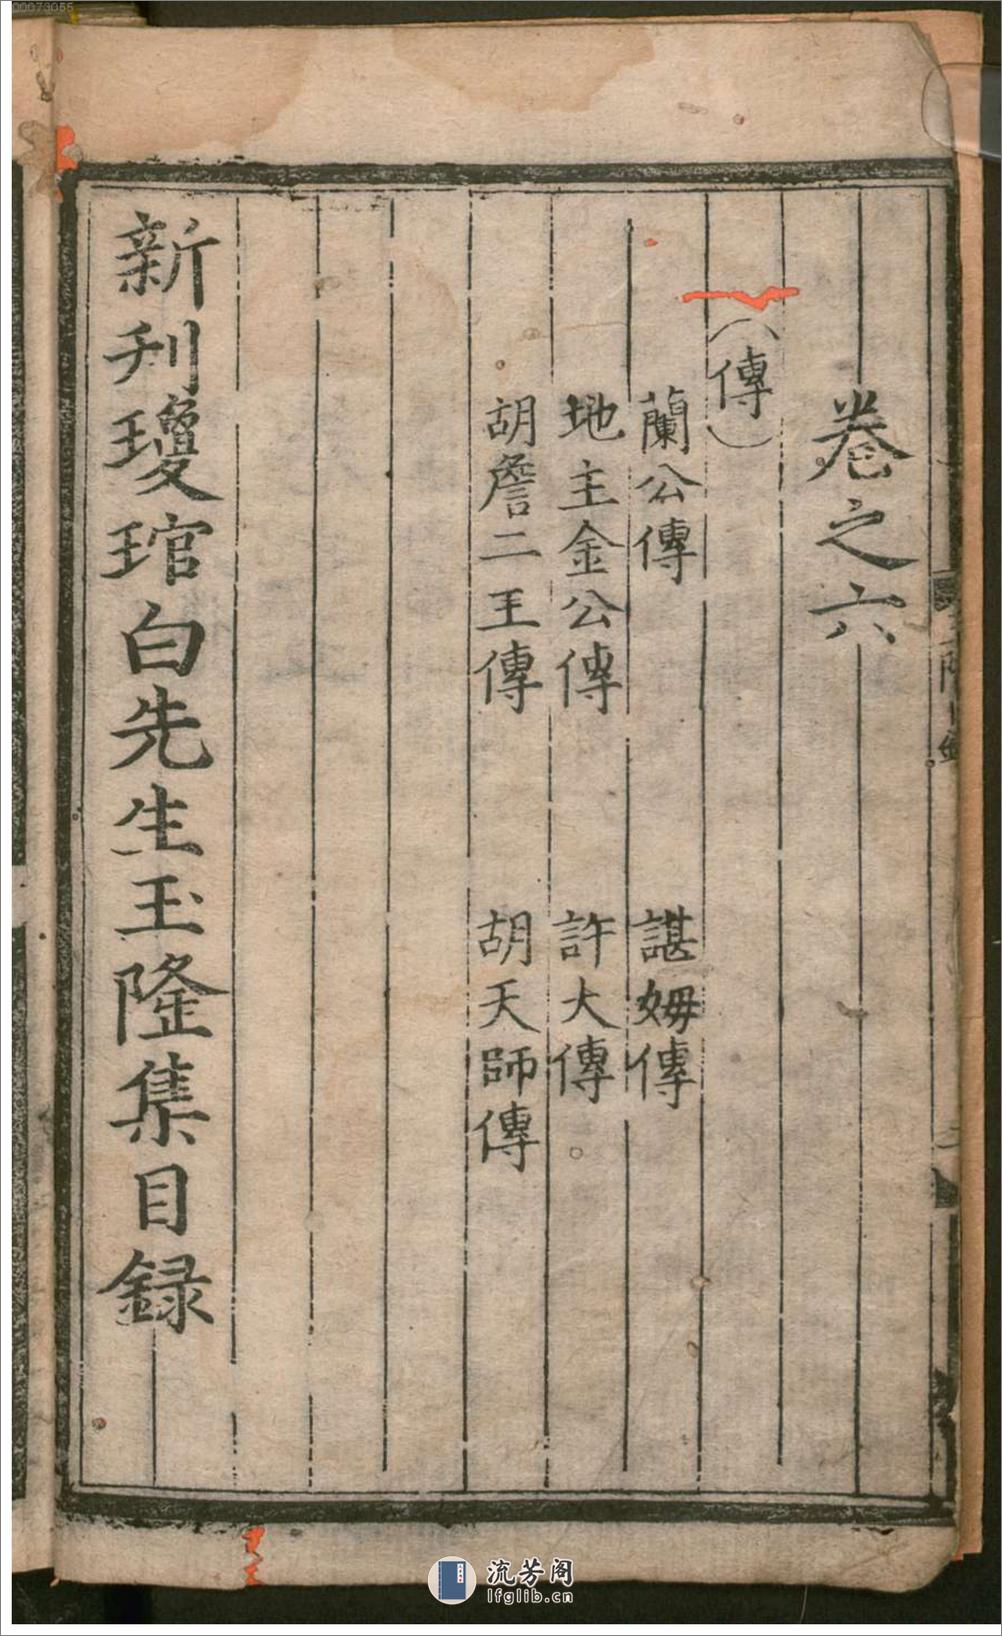 00073055
卷之六
（傳）
蘭公傳　諶姆傳
地主金公傳　許大傳
胡詹二王傳　胡天師傳
新刋瓊琯白先生玉隆集目録
流芳阁
lfglib.cn